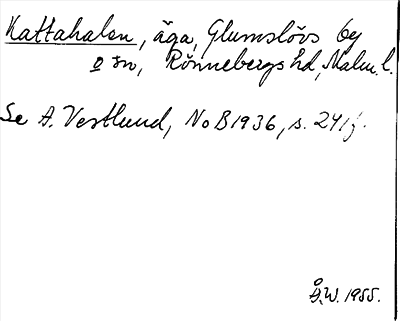 Kattahalan, äga, Glumslövs by
o sn, Rönnebergs hd, Malm. l.
Se A. Vestlund, NoB 1936, s. 241f.
Å.W. 1955.